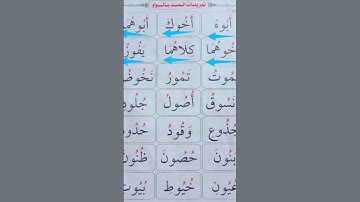 تدريبات المد بالواو
أَبُوهُ أَخُوكَ أَبُوهُمَا
خُوهُمَا كِلَاهُمَا يَفُوزُ
مُوتُ تَمُورُ نَخُوضُ
نَسُوقُ أُصُولُ جُلُودُ
جُذُوعِ وَقُودُ حُدُودُ
بَنُونَ حُصُونَ ظُنُونَ
عُيُونِ خُيُوطِ بُيُوتِ